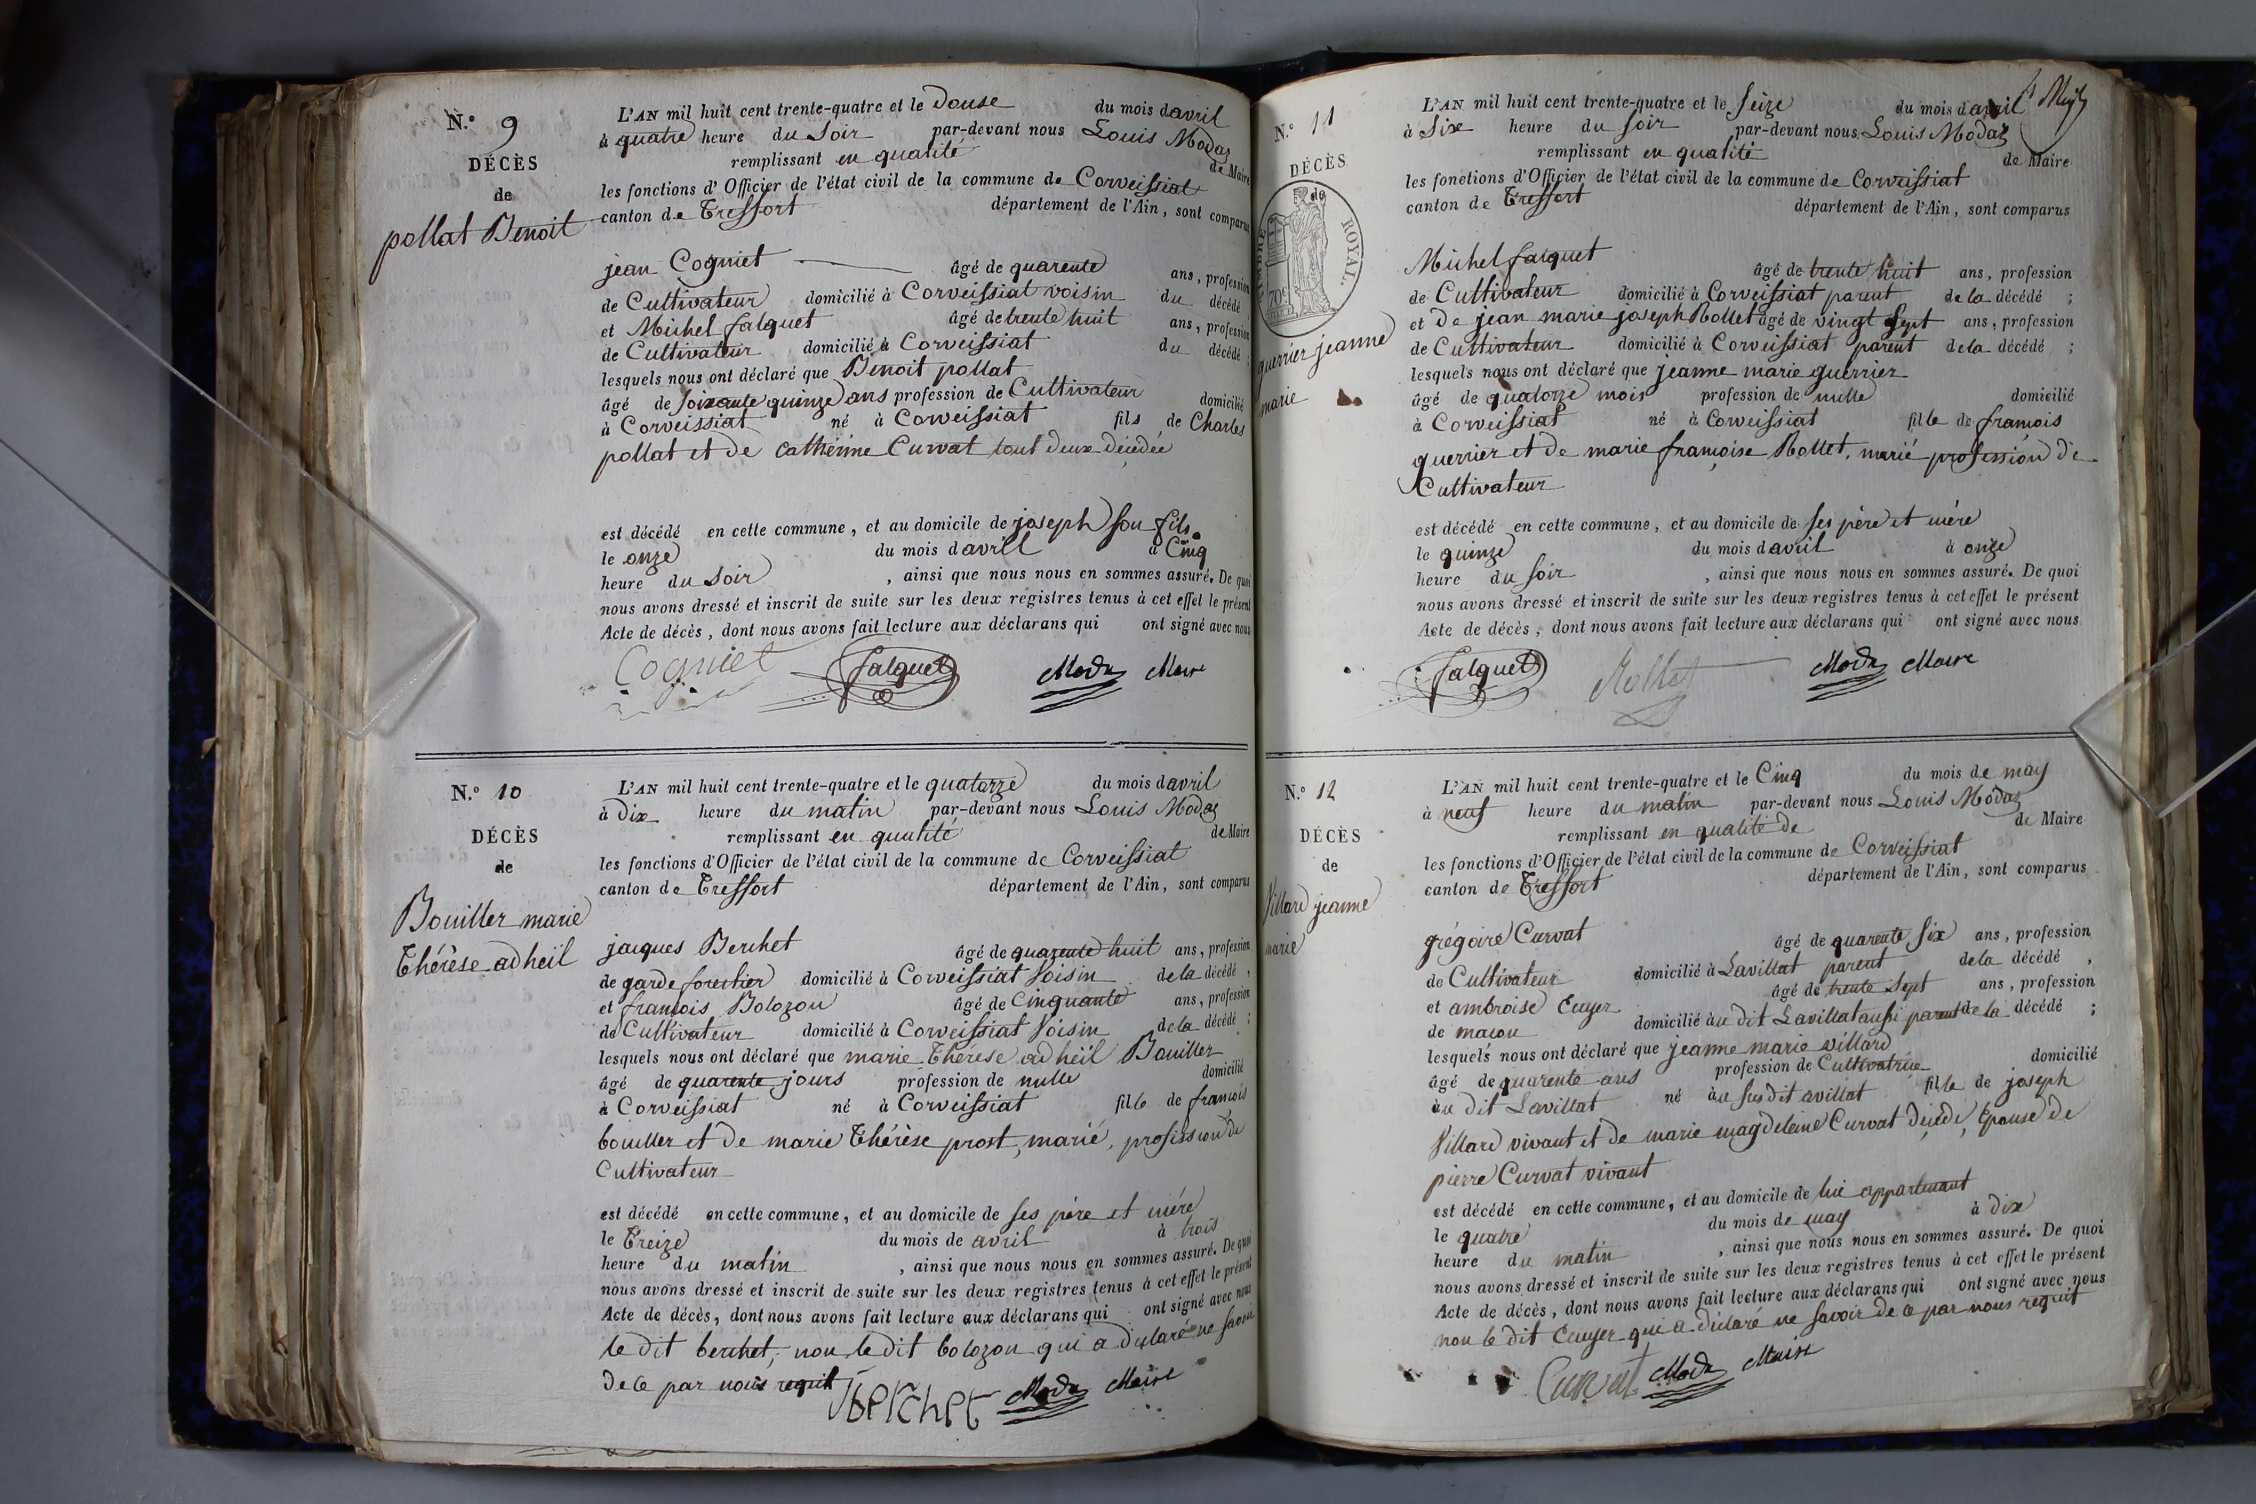 N.º 9
DÉCÈS
de
pollat Benoit
L'AN mil huit cent trente-quatre et le Douse du mois d avril
à quatre heure du soir par-devant nous Louis Modaz
remplissant en qualité de Maire
les fonctions d'Officier de l'état civil de la commune de Corveissiat
canton de Treffort département de l'Ain, sont comparus
jean Cogniet âgé de quarente ans, profession
de Cultivateur domicilié à Corveissiat voisin du décédé
et Michel falquet âgé de trente huit ans, profession
de Cultivateur domicilié à Corveissiat du décédé ;
lesquels nous ont déclaré que Benoit pollat
âgé de soixante quinze ans profession de Cultivateur domicilié
à Corveissiat né à Corveissiat fils de Charles
pollat et de Cathérine Curvat tout deux décédée
est décédé en cette commune, et au domicile de joseph son fils
le onze du mois d avril à Cinq
heure du soir , ainsi que nous nous en sommes assuré. De quoi
nous avons dressé et inscrit de suite sur les deux registres tenus à cet effet le présent
Acte de décès, dont nous avons fait lecture aux déclarans qui ont signé avec nous
Cogniet falquet Modaz Maire
N.º 10
DÉCÈS
de
Bouiller marie
Thérèse adheïl
L'AN mil huit cent trente-quatre et le quatorze du mois d avril
à Dix heure du matin par-devant nous Louis Modaz
remplissant en qualité de Maire
les fonctions d'Officier de l'état civil de la commune de Corveissiat
canton de Treffort département de l'Ain, sont comparus
jacques Berchet âgé de quarente huit ans, profession
de garde forestier domicilié à Corveissiat Voisin de la décédé ,
et françois Bolozon âgé de Cinquante ans, profession
de Cultivateur domicilié à Corveissiat Voisin de la décédé ;
lesquels nous ont déclaré que marie Thérèse adheïl Bouiller
âgé de quarente jours profession de nulle domicilié
à Corveissiat né à Corveissiat fille de françois
bouiller et de marie Thérèse prost, marié, profession de
Cultivateur
est décédé en cette commune, et au domicile de ses père et mére
le Treize du mois de avril à trois
heure du matin , ainsi que nous nous en sommes assuré. De quoi
nous avons dressé et inscrit de suite sur les deux registres tenus à cet effet le présent
Acte de décès, dont nous avons fait lecture aux déclarans qui ont signé avec nous
le dit berchet, non le dit bolozon qui a déclaré ne savoir
de ce par nous requit
berchet Modaz Maire
N.º 11
DÉCÈS
de
TIMBRE ROYAL
guerrier jeanne
marie
L'AN mil huit cent trente-quatre et le seize du mois d avril
à Six heure du soir par-devant nous Louis Modaz
remplissant en qualité de Maire
les fonctions d'Officier de l'état civil de la commune de Corveissiat
canton de Treffort département de l'Ain, sont comparus
Michel falquet âgé de trente huit ans, profession
de Cultivateur domicilié à Corveissiat parent de la décédé ;
et de jean marie joseph Rollet âgé de vingt Sept ans, profession
de Cultivateur domicilié à Corveissiat parent de la décédé ;
lesquels nous ont déclaré que jeanne marie guerrier
âgé de quatorze mois profession de nulle domicilié
à Corveissiat né à Corveissiat fille de françois
guerrier et de marie françoise Rollet, marié profession de
Cultivateur
est décédé en cette commune, et au domicile de ses père et mére
le quinze du mois d avril à onze
heure du soir , ainsi que nous nous en sommes assuré. De quoi
nous avons dressé et inscrit de suite sur les deux registres tenus à cet effet le présent
Acte de décès, dont nous avons fait lecture aux déclarans qui ont signé avec nous
falquet Rollet Modaz Maire
N.º 12
DÉCÈS
de
Villard jeanne
marie
L'AN mil huit cent trente-quatre et le Cinq du mois de may
à neuf heure du matin par-devant nous Louis Modaz
remplissant en qualité de de Maire
les fonctions d'Officier de l'état civil de la commune de Corveissiat
canton de Treffort département de l'Ain, sont comparus
grégoire Curvat âgé de quarente Six ans, profession
de Cultivateur domicilié à Lavillat parent de la décédé ,
et ambroise Cuyer âgé de trente Sept ans, profession
de maçon domicilié au dit Lavillat aussi parent de la décédé ;
lesquels nous ont déclaré que jeanne marie villard
âgé de quarente ans profession de Cultivatrice domicilié
au dit Lavillat né au susdit avillat fille de joseph
Villard vivant et de marie magdeleine Curvat décédé, Epouse de
pierre Curvat vivant
est décédé en cette commune, et au domicile de lui appartenant
le quatre du mois de may à dix
heure du matin , ainsi que nous nous en sommes assuré. De quoi
nous avons dressé et inscrit de suite sur les deux registres tenus à cet effet le présent
Acte de décès, dont nous avons fait lecture aux déclarans qui ont signé avec nous
non le dit Cuyer qui a déclaré ne savoir de ce par nous requit
Curvat Modaz Maire